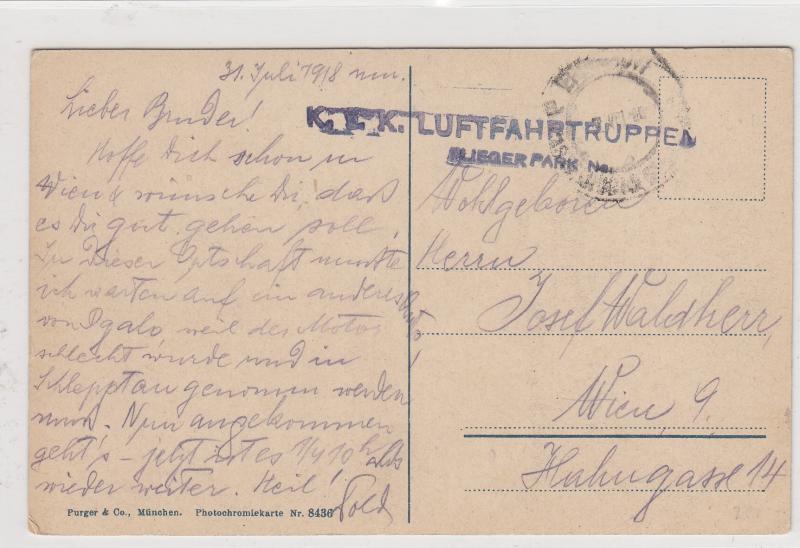 31. Juli 1918 nm.
Lieber Bruder!
Hoffe Dich schon in
Wien & wünsche Dir, daß
es Dir gut gehen soll.
In dieser Ortschaft mußte
ich warten auf ein anderes Auto
von weil des Motor
schlecht wurde und in
Schlepptau genommen werden
muß. Nun angekommen
geht's – jetzt ist es 1/4 10 h abds
wieder weiter. Heil!
Pold
Purger & Co., München. Photochromiekarte Nr. 8436
K. u. K. LUFTFAHRTRUPPEN
FLIEGER PARK No.
Wohlgeboren
Herrn
Josef Waldherr,
Wien, 9.
Hahngasse 14